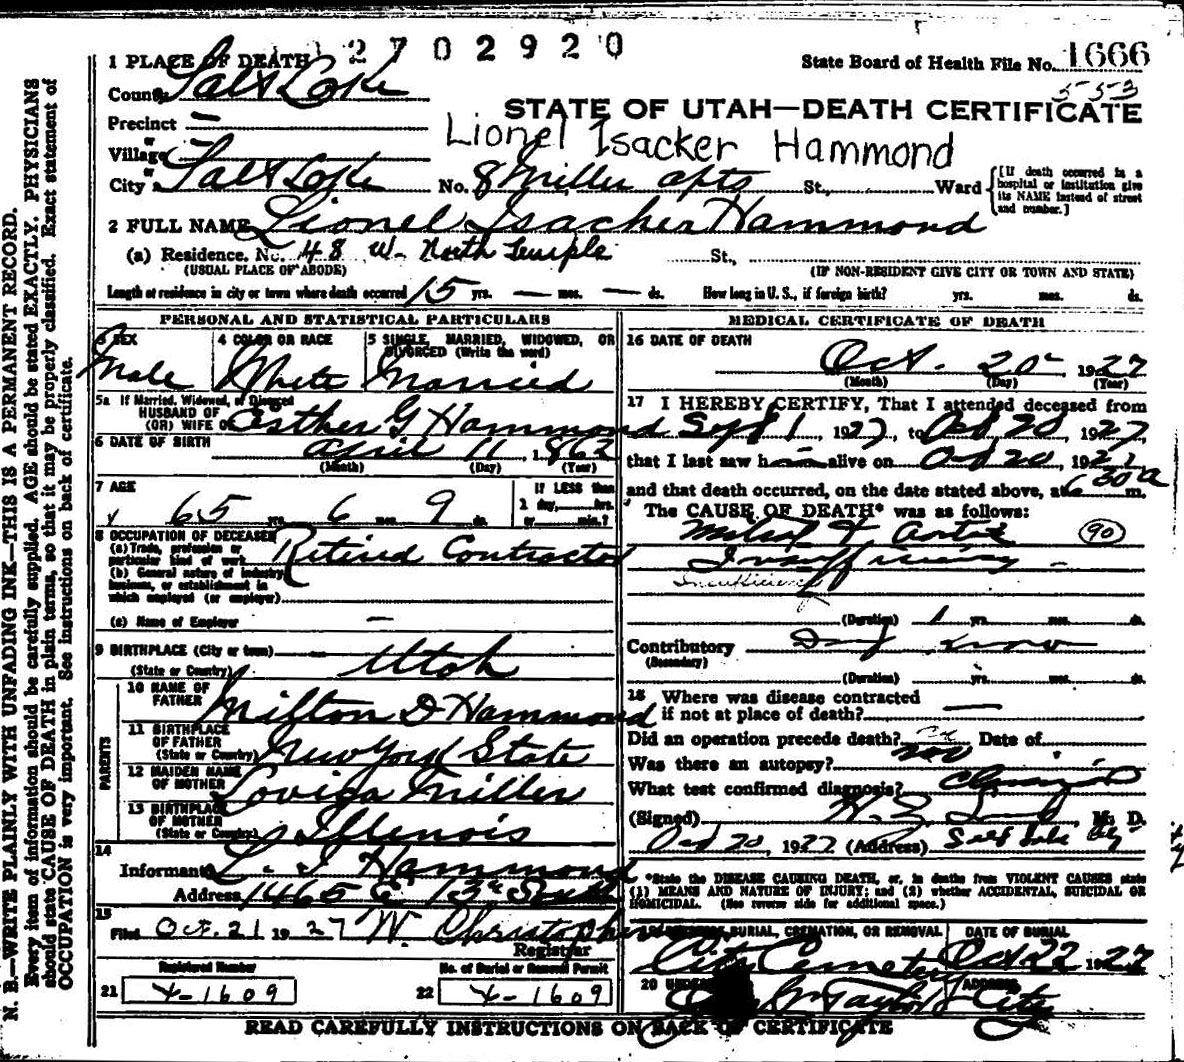 2702920
State Board of Health File No. 1666
553
1 PLACE OF DEATH
County Salt Lake
STATE OF UTAH—DEATH CERTIFICATE
Precinct —
Lionel Isacker Hammond
or
Village —
or
City Salt Lake No. 8 Miller apts St., Ward
[If death occurred in a hospital or institution give its NAME instead of street and number.]
2 FULL NAME Lionel Isacker Hammond
(a) Residence. No. 48 W- North Temple St.,
(USUAL PLACE OF ABODE) (IF NON-RESIDENT GIVE CITY OR TOWN AND STATE)
Length of residence in city or town where death occurred 15 yrs. — mos. — ds. How long in U. S., if foreign birth? yrs. mos. ds.
PERSONAL AND STATISTICAL PARTICULARS
3 SEX Male
4 COLOR OR RACE White
5 SINGLE, MARRIED, WIDOWED, OR DIVORCED (Write the word) Married
5a If Married, Widowed, or Divorced
HUSBAND OF
(OR) WIFE OF Esther G Hammond
6 DATE OF BIRTH April 11 1862
(Month) (Day) (Year)
7 AGE 65 yrs. 6 mos. 9 ds.
IF LESS than
1 day, hrs.
or min.?
8 OCCUPATION OF DECEASED
(a) Trade, profession or
particular kind of work Retired Contractor
(b) General nature of industry
business, or establishment in
which employed (or employer)
(c) Name of Employer —
9 BIRTHPLACE (City or town) —
(State or Country) Utah
PARENTS
10 NAME OF
FATHER Milton D Hammond
11 BIRTHPLACE
OF FATHER
(State or Country) New York State
12 MAIDEN NAME
OF MOTHER Lovisa Miller
13 BIRTHPLACE
OF MOTHER
(State or Country) Illinois
14
Informant L. I Hammond
Address 1465 E 13th South
15
Filed Oct. 21 1927 W. Christopher
Registrar
Registered Number No. of Burial or Removal Permit
21 X-1609 22 X-1609
MEDICAL CERTIFICATE OF DEATH
16 DATE OF DEATH
Oct. 20 1927
(Month) (Day) (Year)
17 I HEREBY CERTIFY, That I attended deceased from
Sept 1, 1927, to Oct 20, 1927
that I last saw him alive on Oct 20, 1927
and that death occurred, on the date stated above, at 6 30a m.
The CAUSE OF DEATH* was as follows:
Mitral &
90
Insufficiency -
Insufficiency
(Duration) 1 yrs. mos. ds.
Contributory
(Secondary)
(Duration) yrs. mos. ds.
18 Where was disease contracted
if not at place of death? —
Did an operation precede death? Date of
Was there an autopsy? no
What test confirmed diagnosis?
(Signed) M. D.
Oct 20, 1927 (Address) Salt Lake City
*State the DISEASE CAUSING DEATH, or, in deaths from VIOLENT CAUSES state
(1) MEANS AND NATURE OF INJURY; and (2) whether ACCIDENTAL, SUICIDAL OR
HOMICIDAL. (See reverse side for additional space.)
BURIAL, CREMATION, OR REMOVAL DATE OF BURIAL
City Cemetery Oct 22 1927
20 Taylor ADDRESS City
READ CAREFULLY INSTRUCTIONS ON BACK OF CERTIFICATE
N. B.—WRITE PLAINLY WITH UNFADING INK—THIS IS A PERMANENT RECORD.
Every item of information should be carefully supplied. AGE should be stated EXACTLY. PHYSICIANS
should state CAUSE OF DEATH in plain terms, so that it may be properly classified. Exact statement of
OCCUPATION is very important. See instructions on back of certificate.